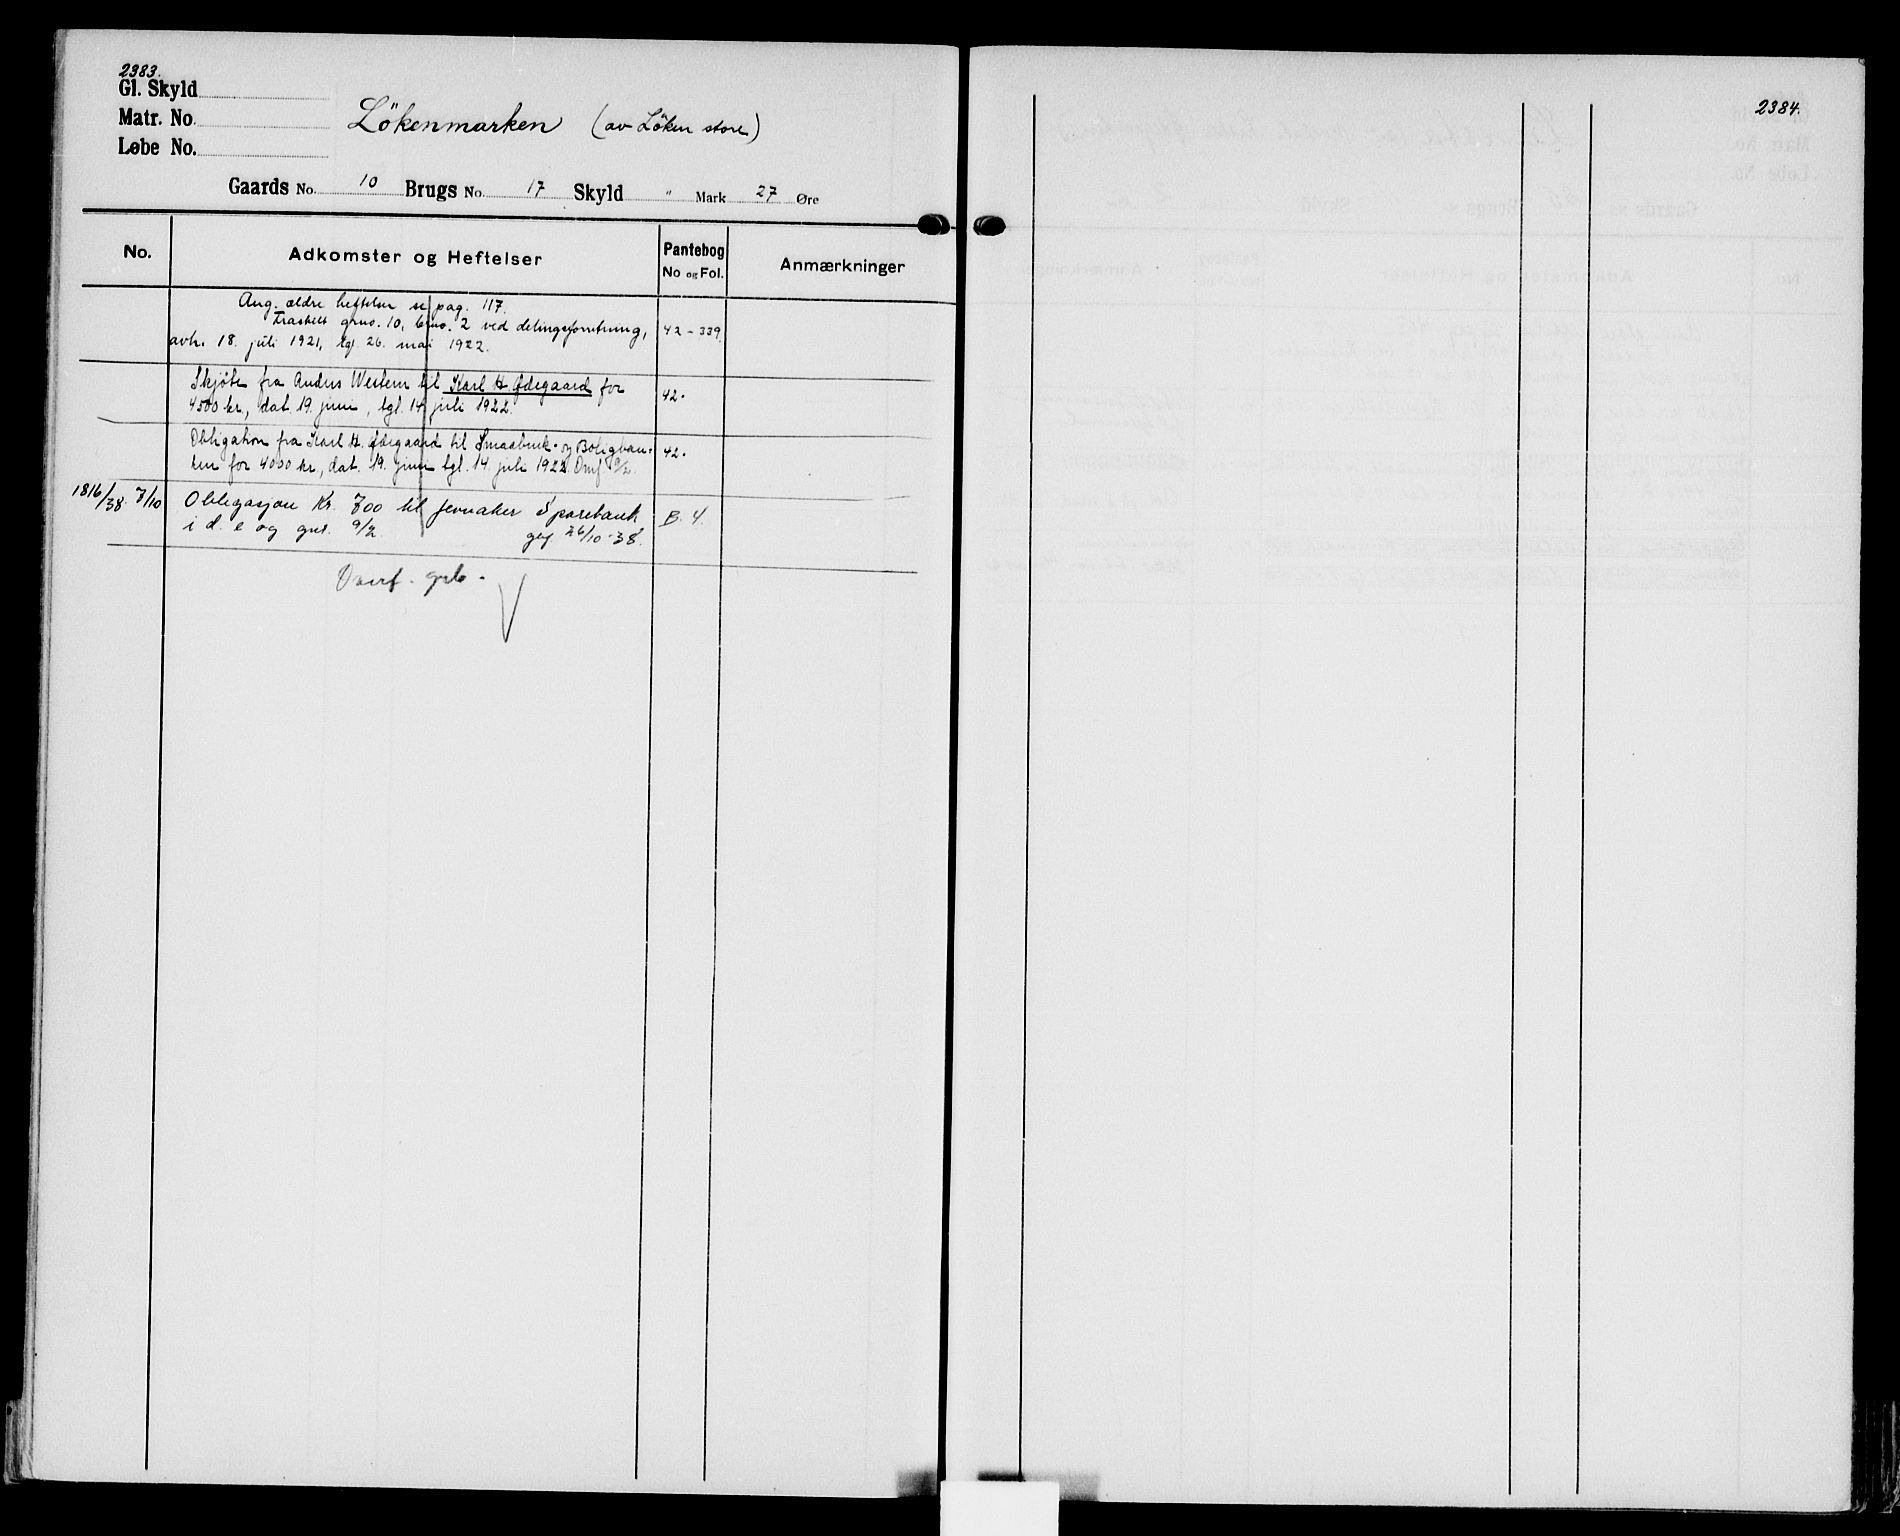 2383.
Gl. Skyld
Matr. No.
Løbe No.
Lökenmarken (av Löken store)
Gaards No. 10 Brugs No. 17 Skyld " Mark 27 Øre
No. Adkomster og Heftelser Pantebog No og Fol. Anmærkninger
Ang. ældre heftelser se pag. 117.
Fraskilt grno. 10, brno. 2 ved delingsforretning, 42 - 339.
avh. 18. juli 1921, tgl. 26. mai 1922.
Skjöte fra Anders Western til Karl H. Ødegaard for 42.
4500 kr, dat. 19. juni, tgl. 14. juli 1922.
Obligation fra Karl H. Ødegaard til Smaabruk- og Boligban- 42.
ken for 4000 kr, dat. 19. juni tgl. 14. juli 1922. Omf. 9/2.
1816/38 7/10 Obligasjon Kr. 700 til Jevnaker Sparebank B. 4.
i d. e og gnr. 9/2 gbf 26/10-38.
Overf. grb.
2384.